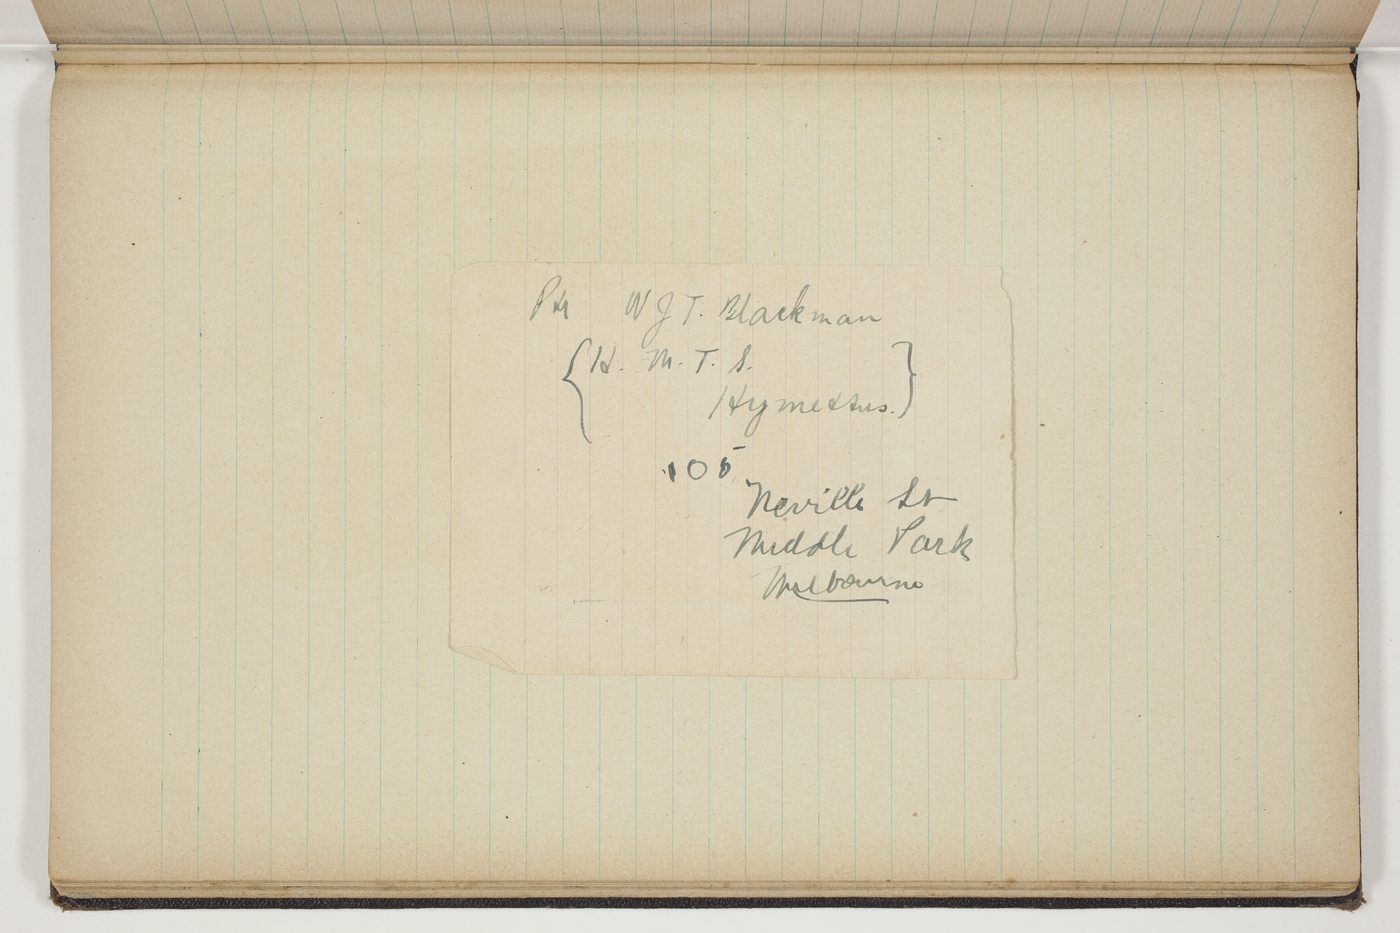 Pte W J T. Blackman
{H. M. T. S.
Hymettus.}
105
Neville St
Middle Park
Melbourne